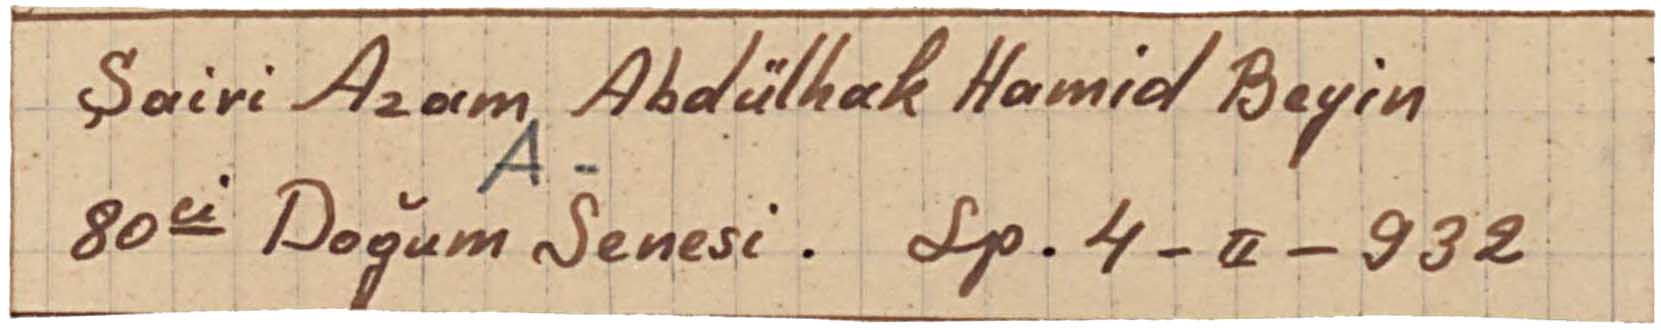 Şairi Azam Abdülhak Hamid Beyin
A -
80ci Doğum Senesi. Sp. 4 - II - 932